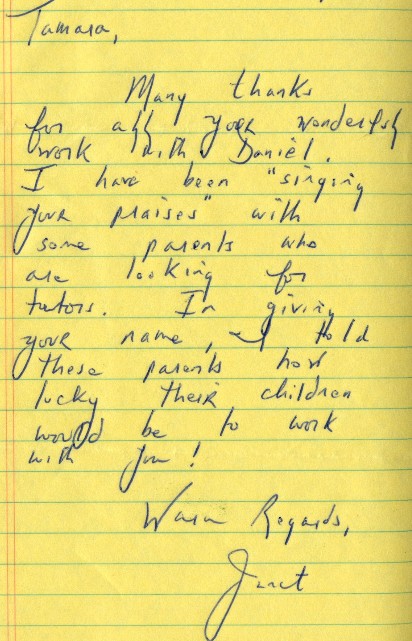 Tamara,
Many thanks
for all your wonderful
work with Daniel.
I have been "singing
your praises" with
some parents who
are looking for
tutors. In giving
your name, I told
these parents how
lucky their children
would be to work
with you!
Warm Regards,
Janet